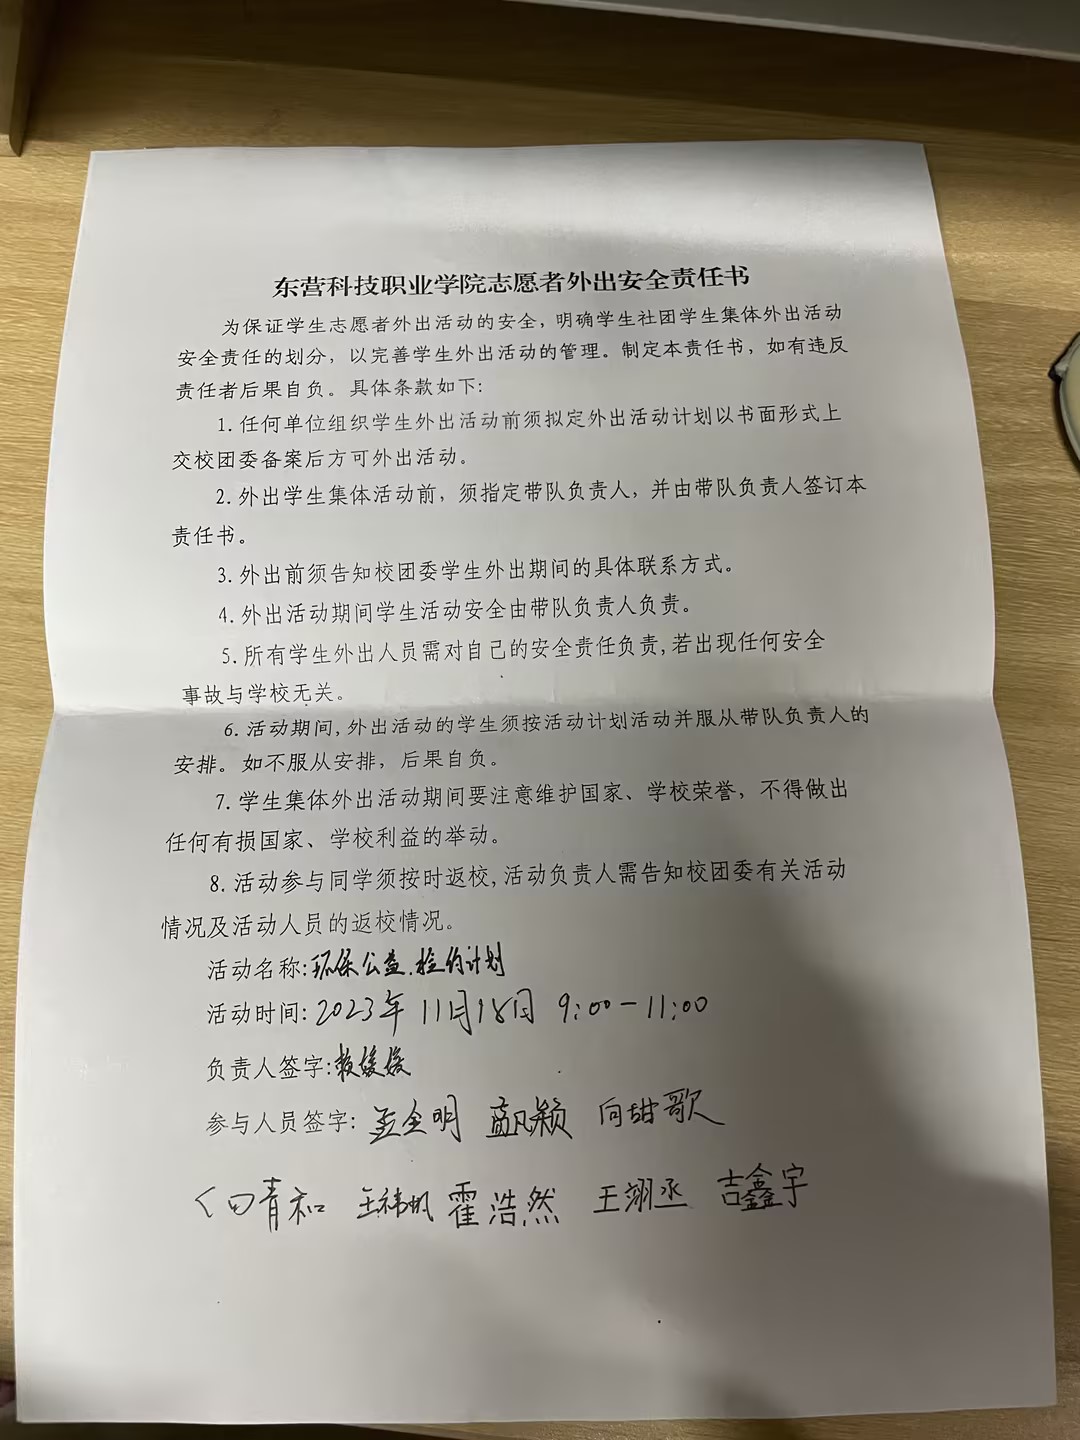 东营科技职业学院志愿者外出安全责任书
为保证学生志愿者外出活动的安全，明确学生社团学生集体外出活动
安全责任的划分，以完善学生外出活动的管理。制定本责任书，如有违反
责任者后果自负。具体条款如下：
1. 任何单位组织学生外出活动前须拟定外出活动计划以书面形式上
交校团委备案后方可外出活动。
2. 外出学生集体活动前，须指定带队负责人，并由带队负责人签订本
责任书。
3. 外出前须告知校团委学生外出期间的具体联系方式。
4. 外出活动期间学生活动安全由带队负责人负责。
5. 所有学生外出人员需对自己的安全责任负责，若出现任何安全
事故与学校无关。
6. 活动期间，外出活动的学生须按活动计划活动并服从带队负责人的
安排。如不服从安排，后果自负。
7. 学生集体外出活动期间要注意维护国家、学校荣誉，不得做出
任何有损国家、学校利益的举动。
8. 活动参与同学须按时返校，活动负责人需告知校团委有关活动
情况及活动人员的返校情况。
活动名称：环保公益.捡约计划
活动时间：2023年 11月18日 9:00-11:00
负责人签字：媛媛
参与人员签字：孟全明 颖 向甜歌
青和 王祎帆 霍浩然 王翊丞 吉鑫宇